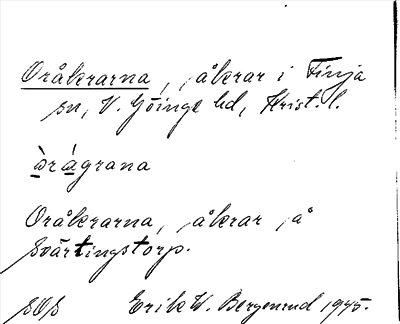 Oråkrarna, åkrar i Finja
sn, V. Göinge hd, Krist. l.
òrágrana
Oråkrarna, åkrar å
Svärtingstorp.
Erik W. Bergenrud 1945.